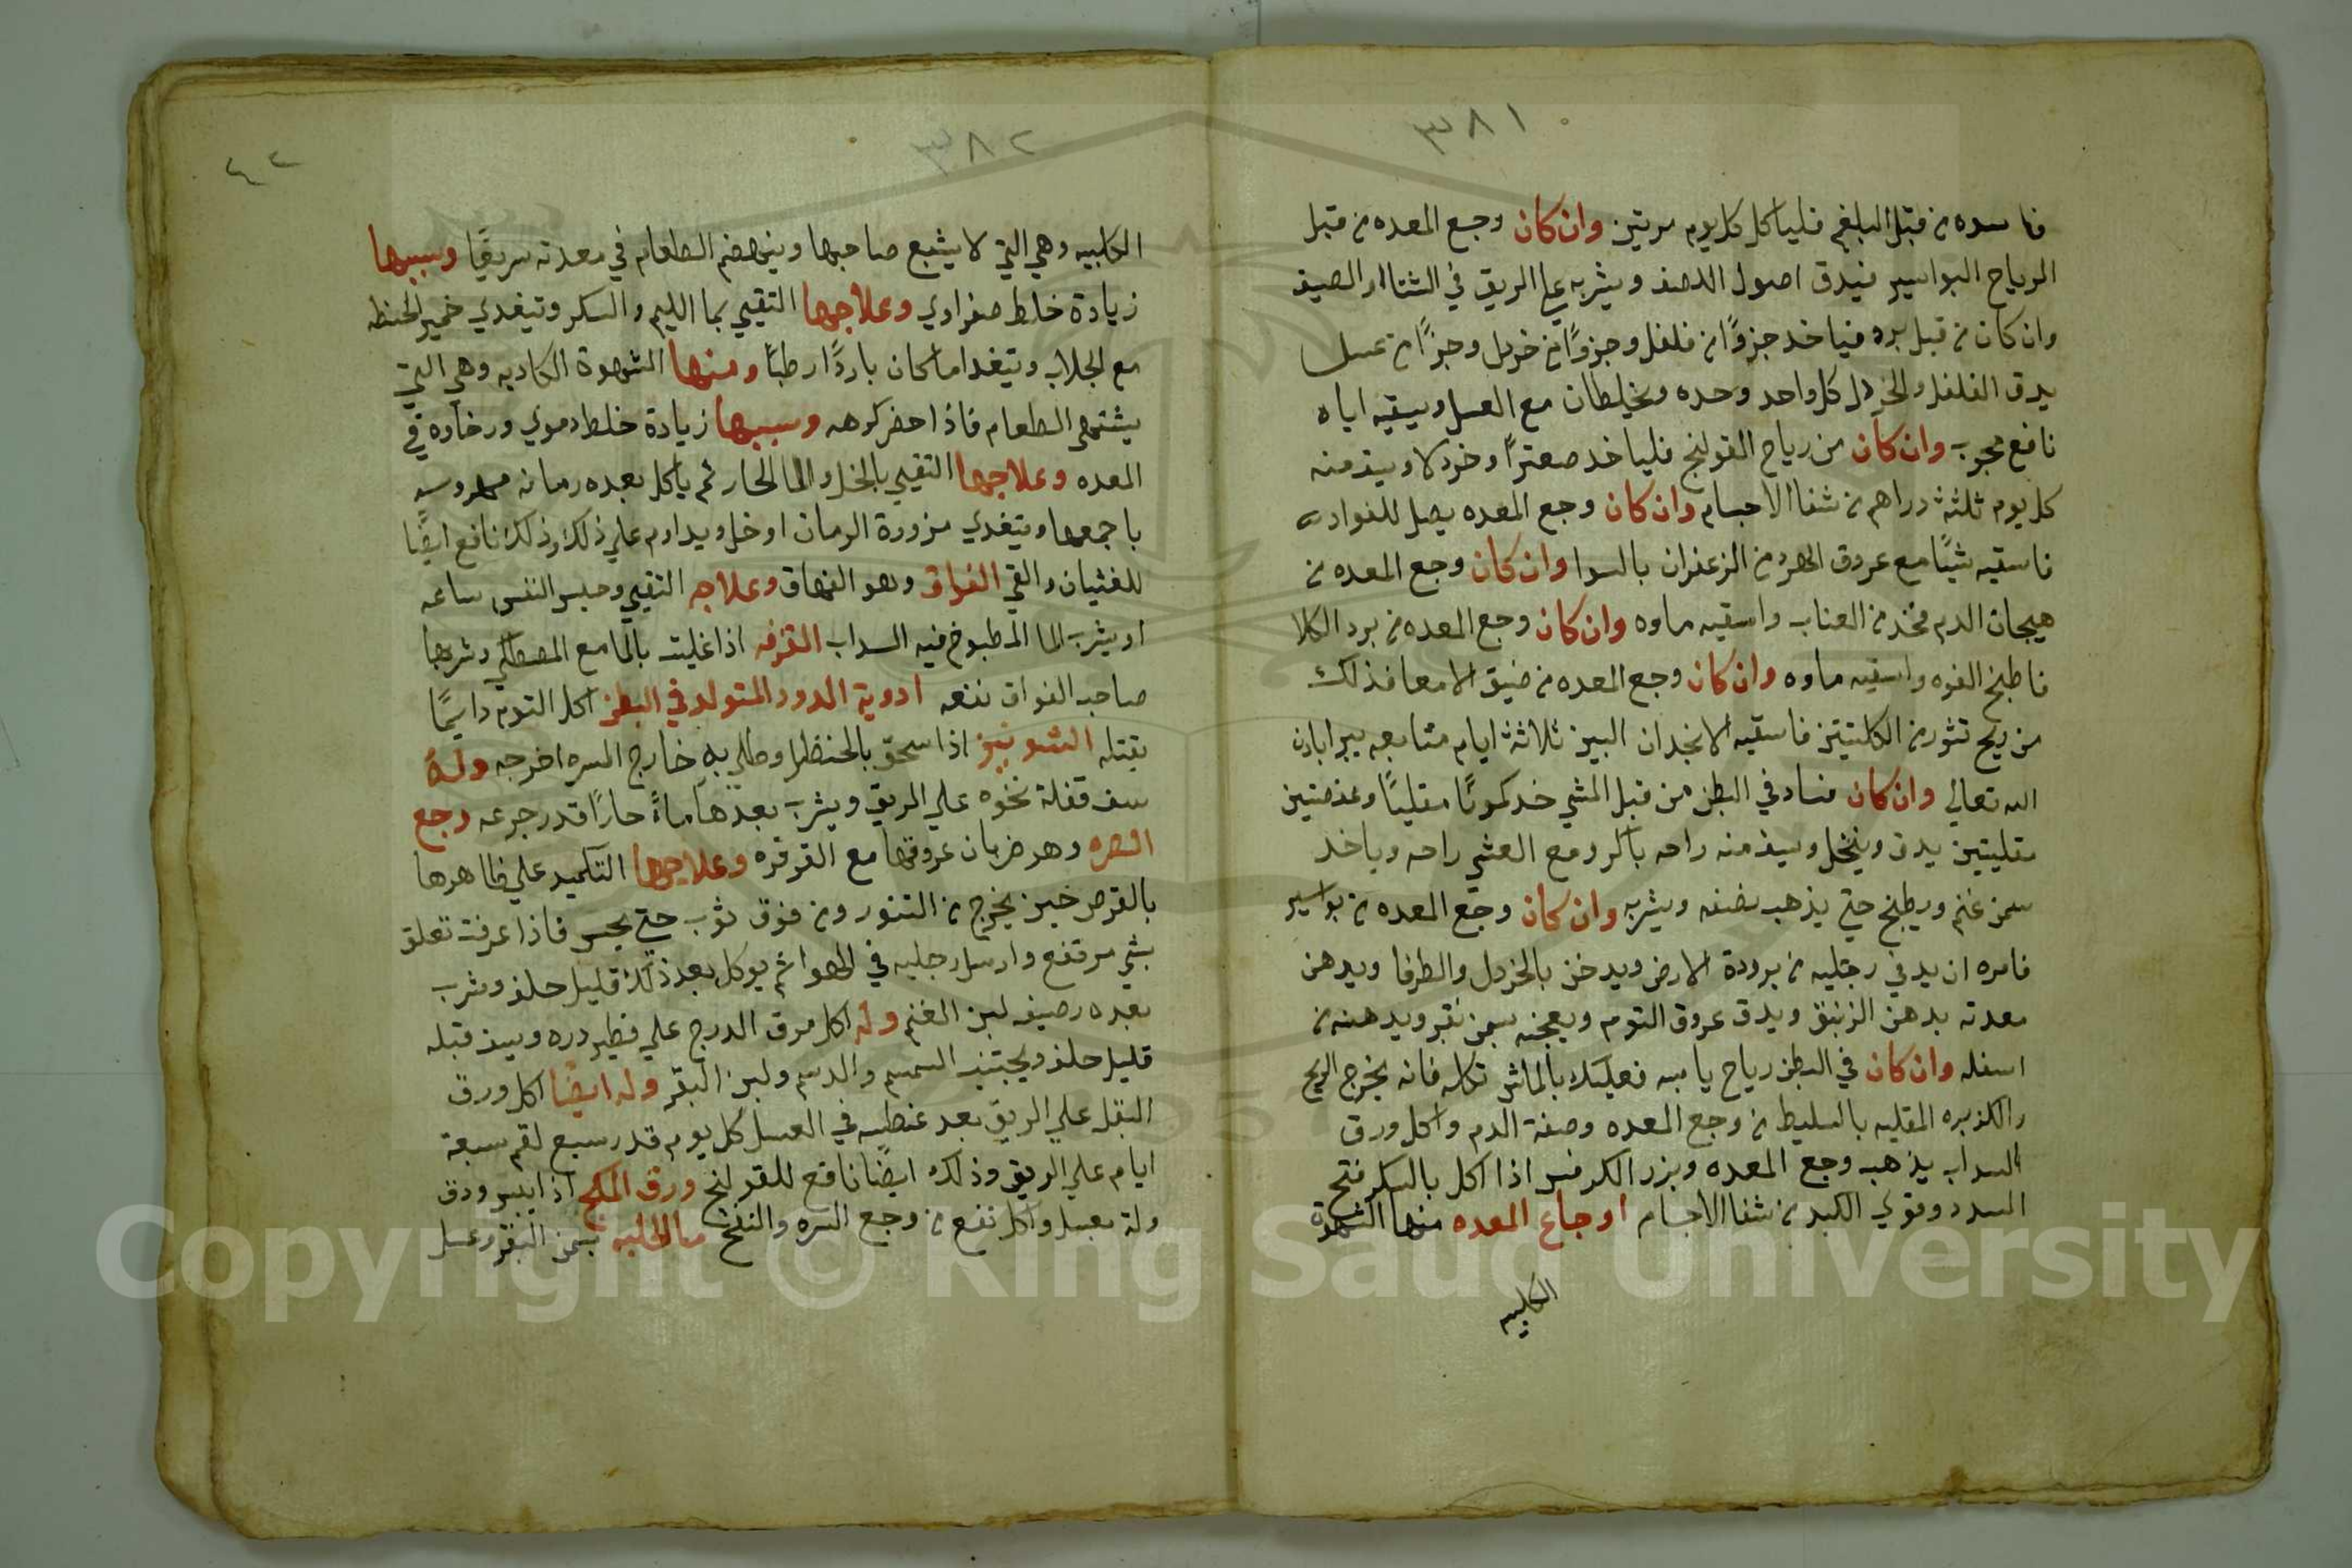 ٣٨١
فاسده من قبل البلغم فلياكل كل يوم مرتين وان كان وجع المعده من قبل
الرياح البواسير فيدق اصول اللصف ويشربه علي الريق في الشتا او الصيف
وان كان من قبل برد فياخد جزوًا من فلفل وجزوًا من خردل وجزًا من عسل
يدق الفلفل والخردل كل واحد وحده ويخلطان مع العسل ويسقيه اياه
نافع مجرب وان كان من رياح القولنج فلياخد صعترًا وخردلا ويسف منه
كل يوم ثلثة دراهم من شفا الاجسام وان كان وجع المعده يصل للفواد
فاسقيه شيًا مع عروق الهرد من الزعفران بالسوا وان كان وجع المعده من
هيجان الدم فخد من العناب واسقيه ماوه وان كان وجع المعده من برد الكلا
فاطبخ الفوه واسقيه ماوه وان كان وجع المعده من ضيق الامعا فذلك
من ريح تثور من الكليتين فاسقيه الانجدان البيز ثلاثة ايام متتابعه يبرا باذن
الله تعالي وان كان فساد في البطن من قبل المشي خد كمونًا مقليًا وعفصتين
مقليتين يدق وينخل ويسف منه راحه باكر ومع العشي راحه وياخد
سمن غنم ويطبخ حتي يذهب نصفه ويشربه وان كان وجع المعده من بواسير
فامره ان يدفي رجليه من برودة الارض ويدخن بالخردل والطرفا ويدهن
معدته بدهن الزنبق ويدق عروق التوم ويعجنه بسمن بقر ويدهنه من
اسفله وان كان في البطن رياح يابسه فعليك بالماش تاكله فانه يخرج الريح
والكزبره المقليه بالسليط من وجع المعده وصفة الدم واكل ورق
السداب يذهب وجع المعده وبزر الكرفس اذا اكل بالسكر فتح
السدد وقوي الكبد من شفا الاجسام اوجاع المعده منها الشهوة
الكلبيه
٣٨٢
٤٢
الكلبيه وهي التي لا يشبع صاحبها وينهضم الطعام في معدته سريعًا وسببها
زيادة خلط صفراوي وعلاجها التقيي بما الليم والسكر وتيغدي خمير الحنطه
مع الجلاب وتيغدا ما كان باردًا رطبًا ومنها الشهوة الكاذبه وهي التي
يشتهي الطعام فاذا احضر كرهه وسببها زيادة خلط دموي ورخاوه في
المعده وعلاجها التقيي بالخل والما الحار ثم ياكل بعده رمانه مهروسه
باجمعها ويتغدي مزورة الرمان او خل ويداوم علي ذلك وذلك نافع ايضًا
للغثيان والقي الفواق وهو الفهاق وعلاجه التقيي وحبس النفس ساعه
او يشرب الما المطبوخ فيه السداب القرفه اذا غليت بالما مع المصطكي وشربها
صاحب الفواق نفعه ادوية الدود المتولد في البطن اكل التوم دايمًا
يقتله الشونيز اذا سحق بالحنظل وطلي به خارج السره اخرجه وله
سف قفلة نخوه علي الريق ويشرب بعدها ماءً حارًا قدر جرعه وجع
السره وهو ضربان عروقها مع القرقره وعلاجها التكميد علي ظاهرها
بالقرص حين يخرج من التنور ومن فوق ثوب حتي يحس فاذا عرفت تعلق
بشي مرتفع وارسل رجليه في الهوا ثم يوكل بعد ذلك قليل حلف وشرب
بعده رضيف لبن الغنم وله اكل مرق الدرج علي فطير دره ويسف قبله
قليل حلف ويجتنب السمسم والدسم ولبن البقر وله ايضًا اكل ورق
البقل علي الريق بعد غطسه في العسل كل يوم قدر سبع لقم سبعة
ايام علي الريق وذلك ايضًا نافع للقولنج ورق الملح اذا يبس ودق
ولة بعسل واكل نفع من وجع السره والنفخ ما الحلبه بسمن البقر وعسل
Copyright © King Saud University